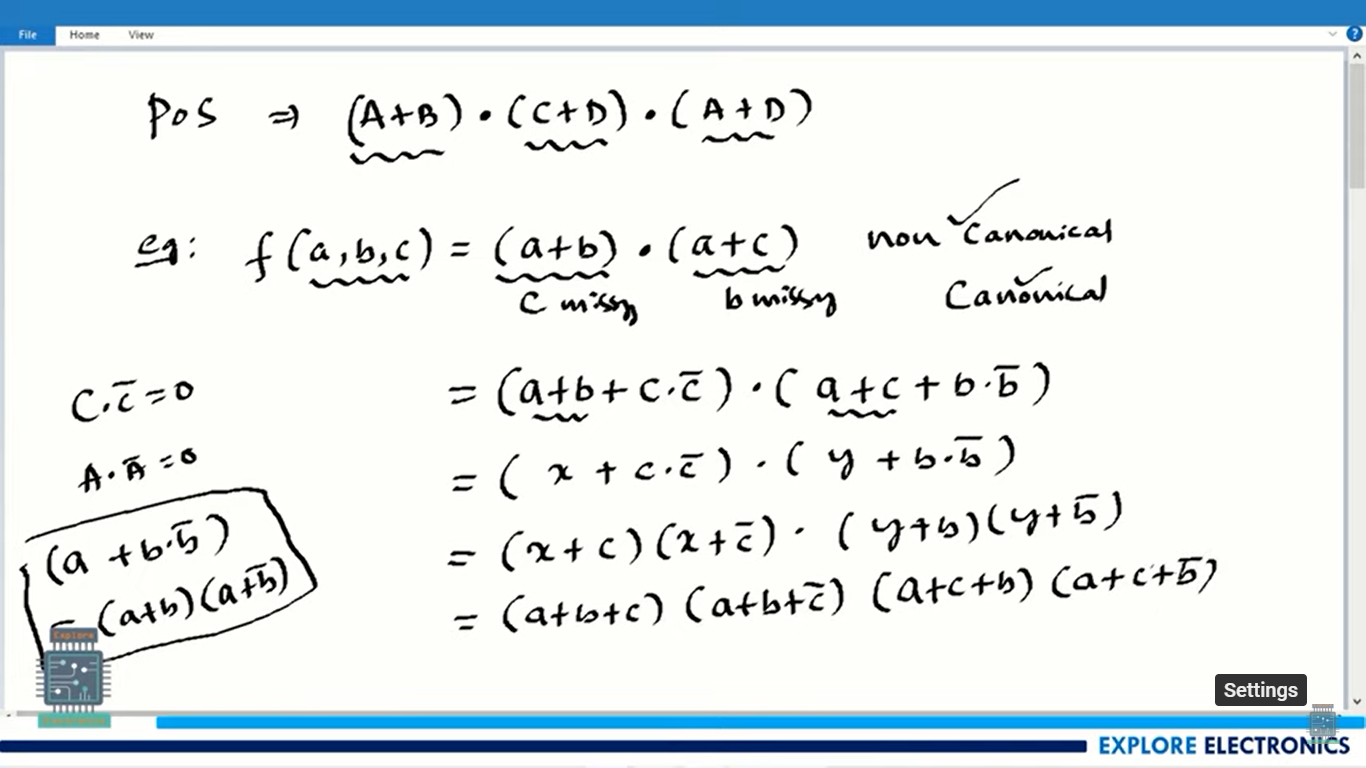 File Home View
POS ⇒ (A+B) · (C+D) · (A+D)
eg: f(a,b,c) = (a+b) · (a+c) non Canonical
C missy b missy Canonical
C·c̅=0 = (a+b+c·c̅) · (a+c+b·b̅)
A·A̅=0 = (x+c·c̅) · (y+b·b̅)
(a+b·b̅) = (x+c)(x+c̅) · (y+b)(y+b̅)
= (a+b)(a+b̅) = (a+b+c) (a+b+c̅) (a+c+b) (a+c+b̅)
Explore
Settings
EXPLORE ELECTRONICS